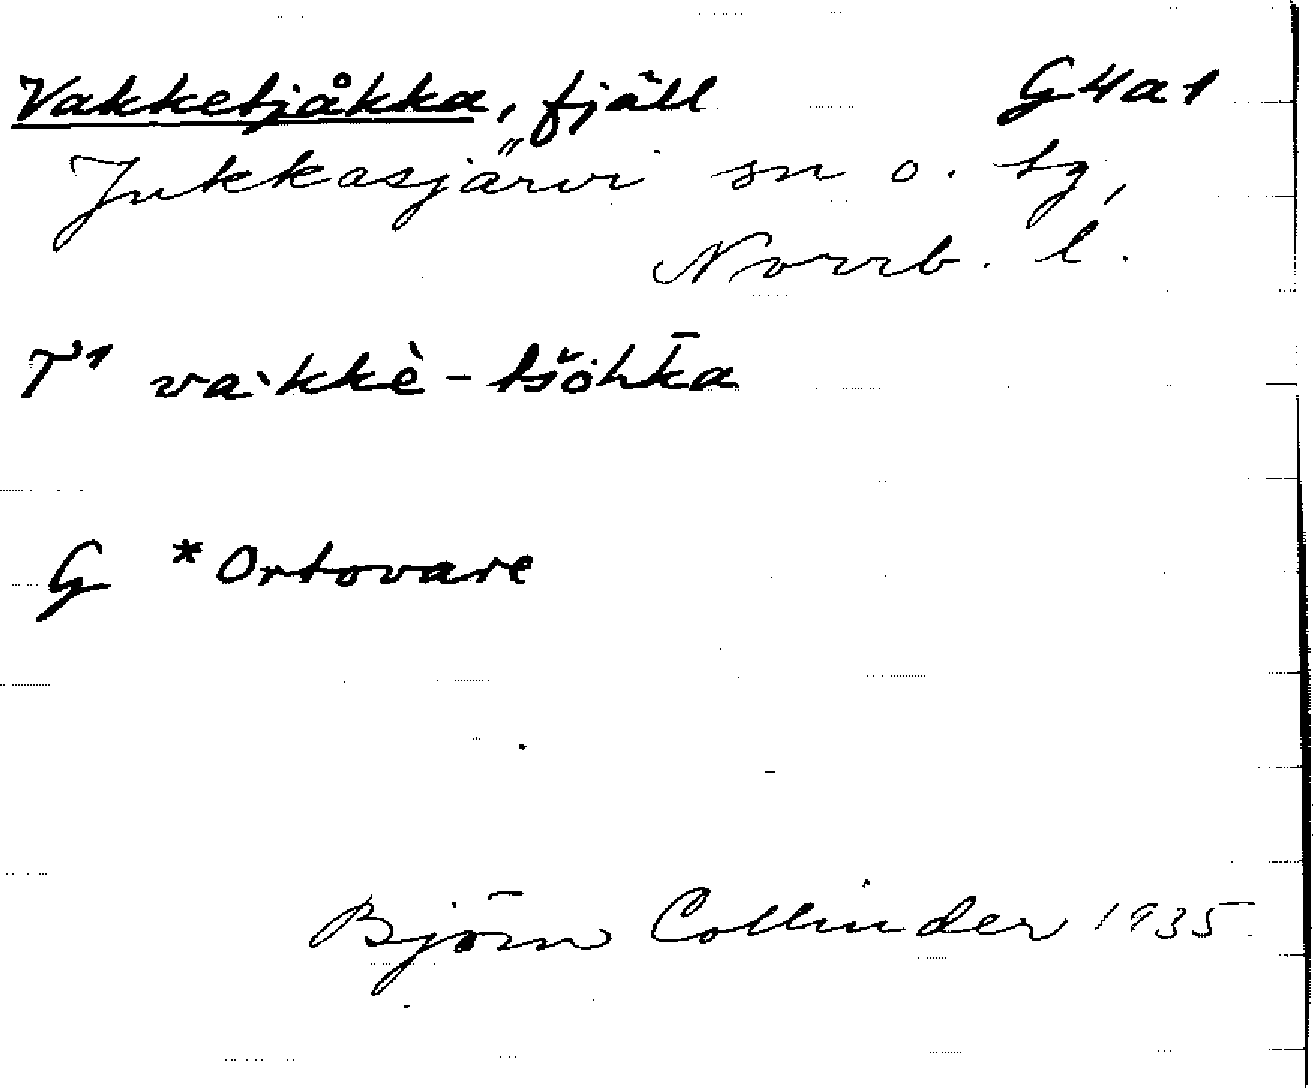 Vakketjåkka, fjäll G4a1
Jukkasjärvi sn o. tg,
Norrb. l.
T¹ va·kkè-tšŏhk̄a
G *Ortovare
Björn Collinder 1935